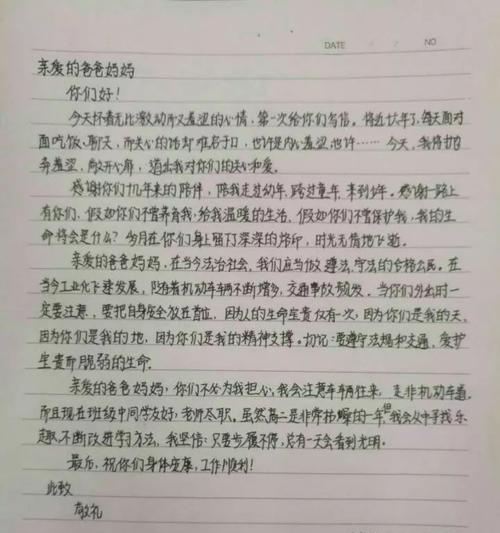 DATE / / NO
亲爱的爸爸妈妈
你们好！
今天怀着无比激动而又羞望的心情，第一次给你们写信。将近廿年了，每天面对
面吃饭、聊天，而关心的话却难名于口，也许是内心羞望也许……今天，我将抛
弃羞望，敞开心扉，道出我对你们的关心和爱。
感谢你们十几年来的陪伴，陪我走过幼年，跨过童年，来到少年。感谢一路上
有你们，假如你们不曾养育我，给我温暖的生活，假如你们不曾保护我，我的生
命将会是什么？岁月在你们身上留下深深的烙印，时光无情地飞逝。
亲爱的爸爸妈妈，在当今法治社会，我们应当做遵法，守法的合格公民。在
当今工业化飞速发展，随着机动车车辆不断增多，交通事故频发。当你们外出时一
定要注意，要把自身安全放在首位，因为人的生命宝贵仅有一次，因为你们是我的天，
因为你们是我的地，因为你们是我的精神支撑。切记：要遵守法规和交通，爱护
宝贵而脆弱的生命。
亲爱的爸爸妈妈，你们不必为我担心，我会注意车辆往来，走非机动车道，
而且现在班级中同学友好，老师尽职。虽然高二是非常枯燥的一年，但我会从中寻找乐
趣，不断改进学习方法，我坚信：只要步履不停，总有一天会看到光明。
最后，祝你们身体安康，工作顺利！
此致
敬礼